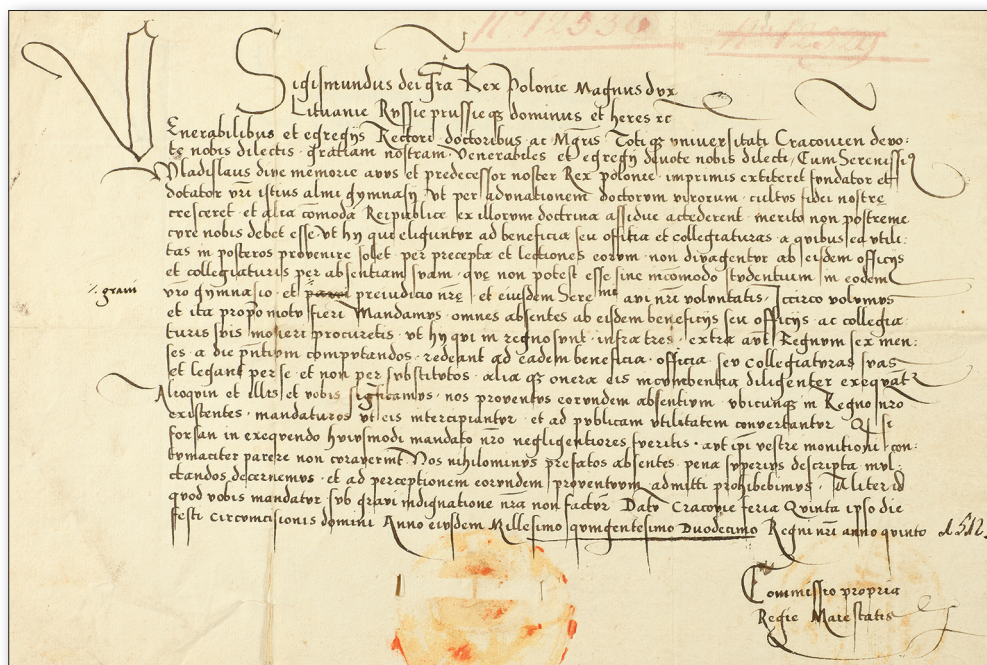 Nº 12536 Nº 12529
Sigismundus dei gra Rex Polonie Magnus dux
Lituanie Russie prussieqz dominus et heres rc
Venerabilibus et egregijs Rectori doctoribus ac Mgris Totiqz universitati Cracovien devo:
te nobis dilectis gratiam nostram. Venerabiles et egregij devote nobis dilecti, Cum Serenissi
Vladislaus dive memorie avus et predecessor noster Rex polonie imprimis extiterit fundator et
dotator vri istius almi gymnasij Ut per adunationem doctorum virorum cultus fidei nostre
cresceret et alia comoda Reipublice ex illorum doctrina assidue accederent merito non postreme
cure nobis debet esse Ut hij qui eliguntur ad beneficia seu offitia et collegiaturas a quibus ea utili:
tas in posteros provenire solet per precepta et lectiones eorum non divagentur ab eisdem officijs
et collegiaturis per absentiam suam que non potest esse sine incomodo studentium in eodem
÷ gravi
vro gymnasio et parvi preiudicio nre et eiusdem Sere mi avi nri voluntatis, Iccirco volumus
et ita propo motu fieri Mandamus omnes absentes ab eisdem beneficijs seu officijs ac collegia:
turis suis moneri procuretis ut hij qui in regno sunt infra tres extra aut Regnum sex men:
ses a die pntium computandos redeant ad eadem beneficia officia seu collegiaturas suas
et legant per se et non per substitutos alia qz onera eis incumbentia diligenter exequat
Alioquin et illis et vobis sigficamus nos proventus eorundem absentium ubicunqz in Regno nro
existentes mandaturos ut eis intercipiantur et ad publicam utilitatem convertantur Qz si
forsan in exequendo huiusmodi mandato nro negligentiores fueritis aut ipi vestre monitioni con:
tumaciter parere non curaverint Nos nihilominus prefatos absentes pena superius descripta mul:
ctandos decernemus et ad perceptionem eorundem proventuum admitti prohibebimus. Aliter id
quod vobis mandatur sub gravi indignatione nra non facturi Datu Cracovie feria Quinta ipso die
festi Circumcisionis domini Anno eiusdem Millesimo quingentesimo Duodecimo Regni nri anno quinto 1512
Commissio propria
Regie Maiestatis